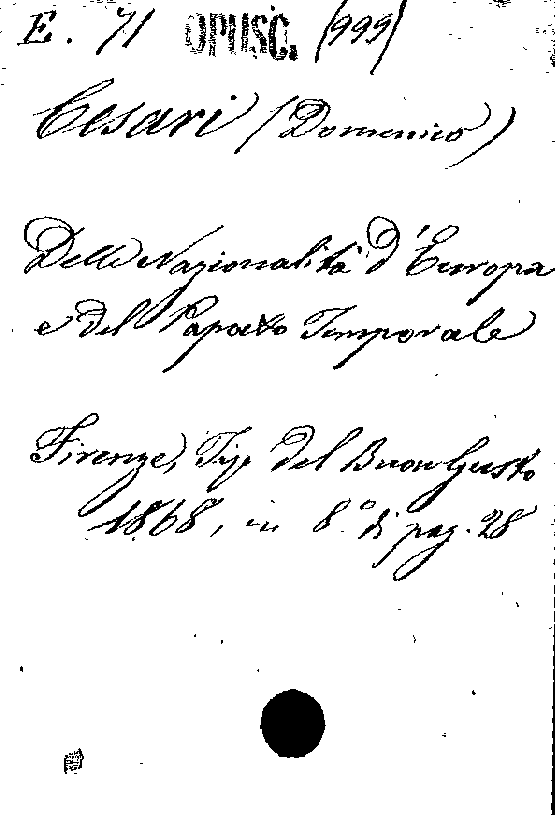 E. 71 OPUSC. (999)
Cesari (Domenico)
Delle Nazionalità d'Europa
e del Papato Temporale
Firenze, Tip. del Buon Gusto
1868, in 8.º di pag. 28